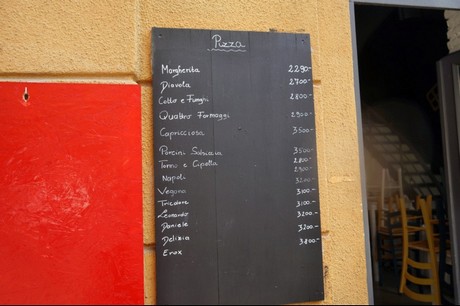 Pizza
Margherita 2290-
Diavola 2700-
Cotto e Funghi 2800-
Quattro Formaggi 2900-
Capricciosa 3500-
Porcini Salsiccia 3500-
Tonno e Cipolla 2800-
Napoli 2900-
Vegana 3200-
Tricolore 3100-
Leonardo 3100-
Daniele 3200-
Delizia 3200-
Erox 3800-